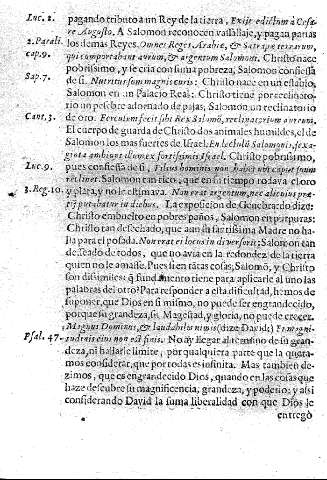 Luc. 2. pagando tributo a un Rey de la tierra, Exijt edictum à Cesa-
re Augusto. A Salomon reconocen vassallaje, y pagan parias
2. Parali. los demas Reyes. Omnes Reges Arabiæ, & Satrapæ terrarum,
cap. 9. qui comportabant aurum, & argentum Salomoni. Christo nace
pobrissimo, y se cria con suma pobreza, Salomon confiessa
Sap. 7. de si. Nutritus sum magnis curis: Christo nace en un establo,
Salomon en un Palacio Real: Christo tiene por reclinato-
rio un pesebre adornado de pajas, Salomon un reclinatorio
Cant. 3. de oro. Ferculum fecit sibi Rex Salomō, reclinatorium aureum.
El cuerpo de guarda de Christo dos animales humildes, el de
Salomon los mas fuertes de Israel. En lectulū Salomonis, sexa-
ginta ambiunt illum ex fortissimis Israel. Christo pobrissimo,
Luc. 9. pues confiessa de si, Filius hominis non habet ubi caput suum
reclinet. Salomon tan rico, que en su tiempo rodava el oro
3. Reg. 10. y plata, y no se estimava. Non erat argentum, nec alicuius pre-
tij putabatur in diebus. La exposicion de Genebrardo dize:
Christo embuelto en pobres paños, Salomon en purpuras:
Christo tan desechado, que aun su santissima Madre no ha-
lla para el posada. Non erat ei locus in diversorio: Salomon tan
desseado de todos, que no avia en la redondez de la tierra
quien no le amasse. Pues si en tātas cosas, Salomō, y Christo
son dissimiles: q̃ fundamento tiene para aplicarle al uno las
palabras del otro? Para responder a esta dificultad, hemos de
suponer, que Dios en si mismo, no puede ser engrandecido,
porque su grandeza, su Magestad, y gloria, no puede crecer.
Magnus Dominus, & laudabilis nimis (dize David) Et magni-
Psal. 47. tudinis eius non est finis. No ay llegar al termino de su gran-
deza, ni hallarle limite, por qualquiera parte que la quera-
mos considerar, que por todas es infinita. Mas tambien de-
zimos, que es engrandecido Dios, quando en las cosas que
haze descubre su magnificencia, grandeza, y poderio; y assi
considerando David la suma liberalidad con que Dios le
entregò